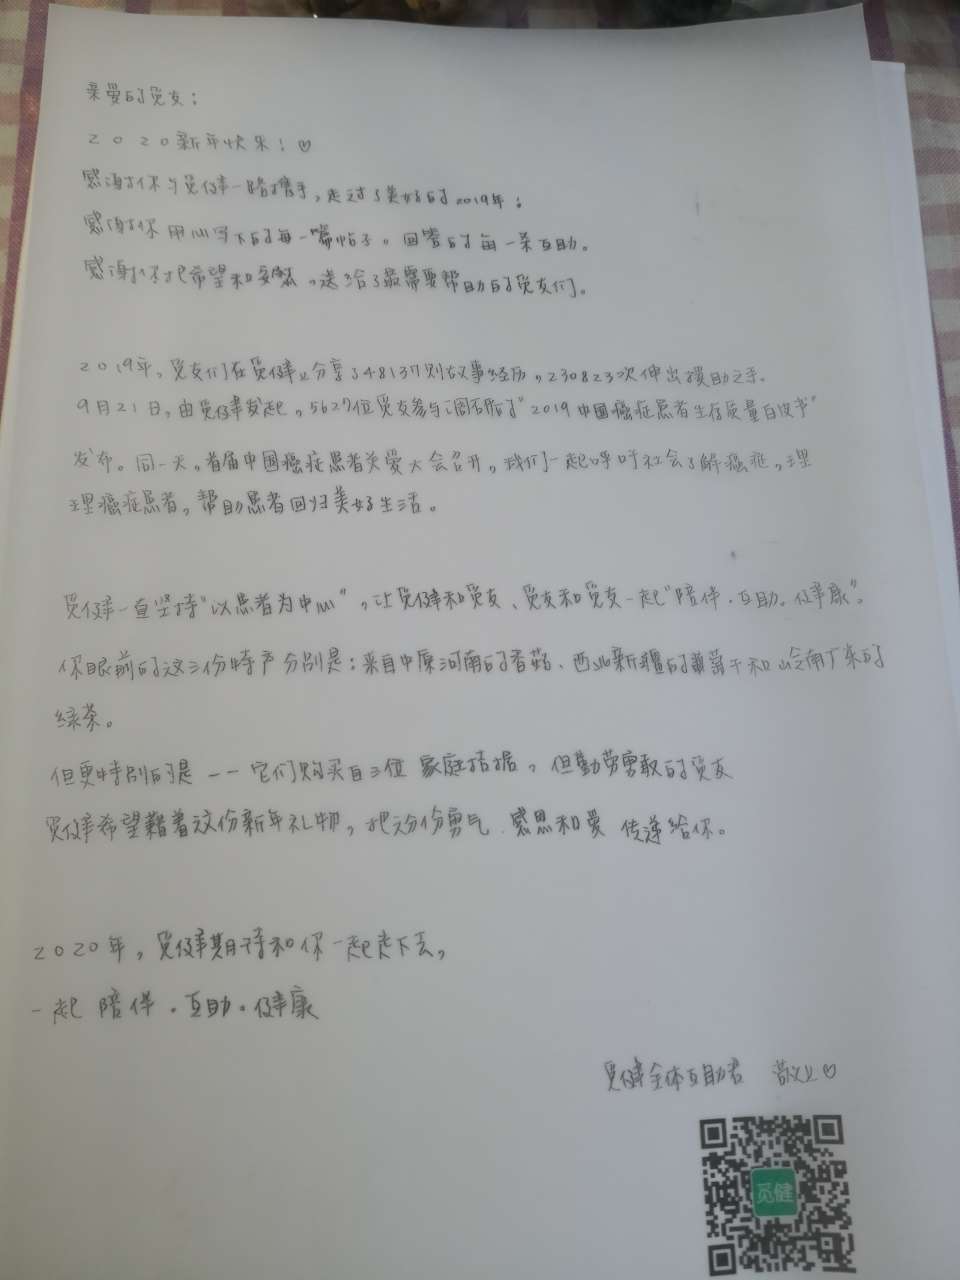 亲爱的觅友：
2020新年快乐！♡
感谢你与觅健一路携手，走过了美好的2019年；
感谢你用心写下的每一篇帖子。回答的每一条互助。
感谢你把希望和安慰，送给了最需要帮助的觅友们。
2019年，觅友们在觅健上分享了48137则故事经历，230823次伸出援助之手。
9月21日，由觅健发起，5627位觅友参与调研的"2019中国癌症患者生存质量白皮书"
发布。同一天，首届中国癌症患者关爱大会召开，我们一起呼吁社会了解癌症，理
理癌症患者，帮助患者回归美好生活。
觅健一直坚持"以患者为中心"，让觅健和觅友、觅友和觅友一起"陪伴.互助.健康"。
你眼前的这三份特产分别是：来自中原河南的香菇、西北新疆的葡萄干和岭南广东的
绿茶。
但更特别的是——它们购买自三位 家庭拮据，但勤劳勇敢的觅友
觅健希望藉着这份新年礼物，把这份勇气、感恩和爱 传递给你。
2020年，觅健期待和你一起走下去，
一起 陪伴.互助.健康
觅健全体互助君 敬上♡
觅健